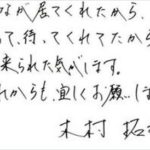 なが居てくれたから、
って、待ってくれてたから
来られた気がします。
れからも、宜しくお願いしま
木村 拓